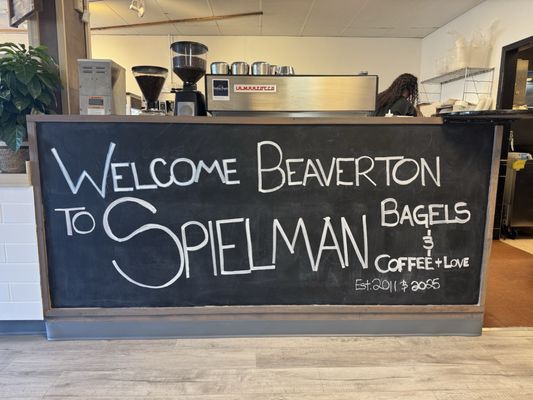 LA MARZOCCO
WELCOME BEAVERTON
TO SPIELMAN
BAGELS
&
COFFEE + LOVE
EST. 2011 & 2025